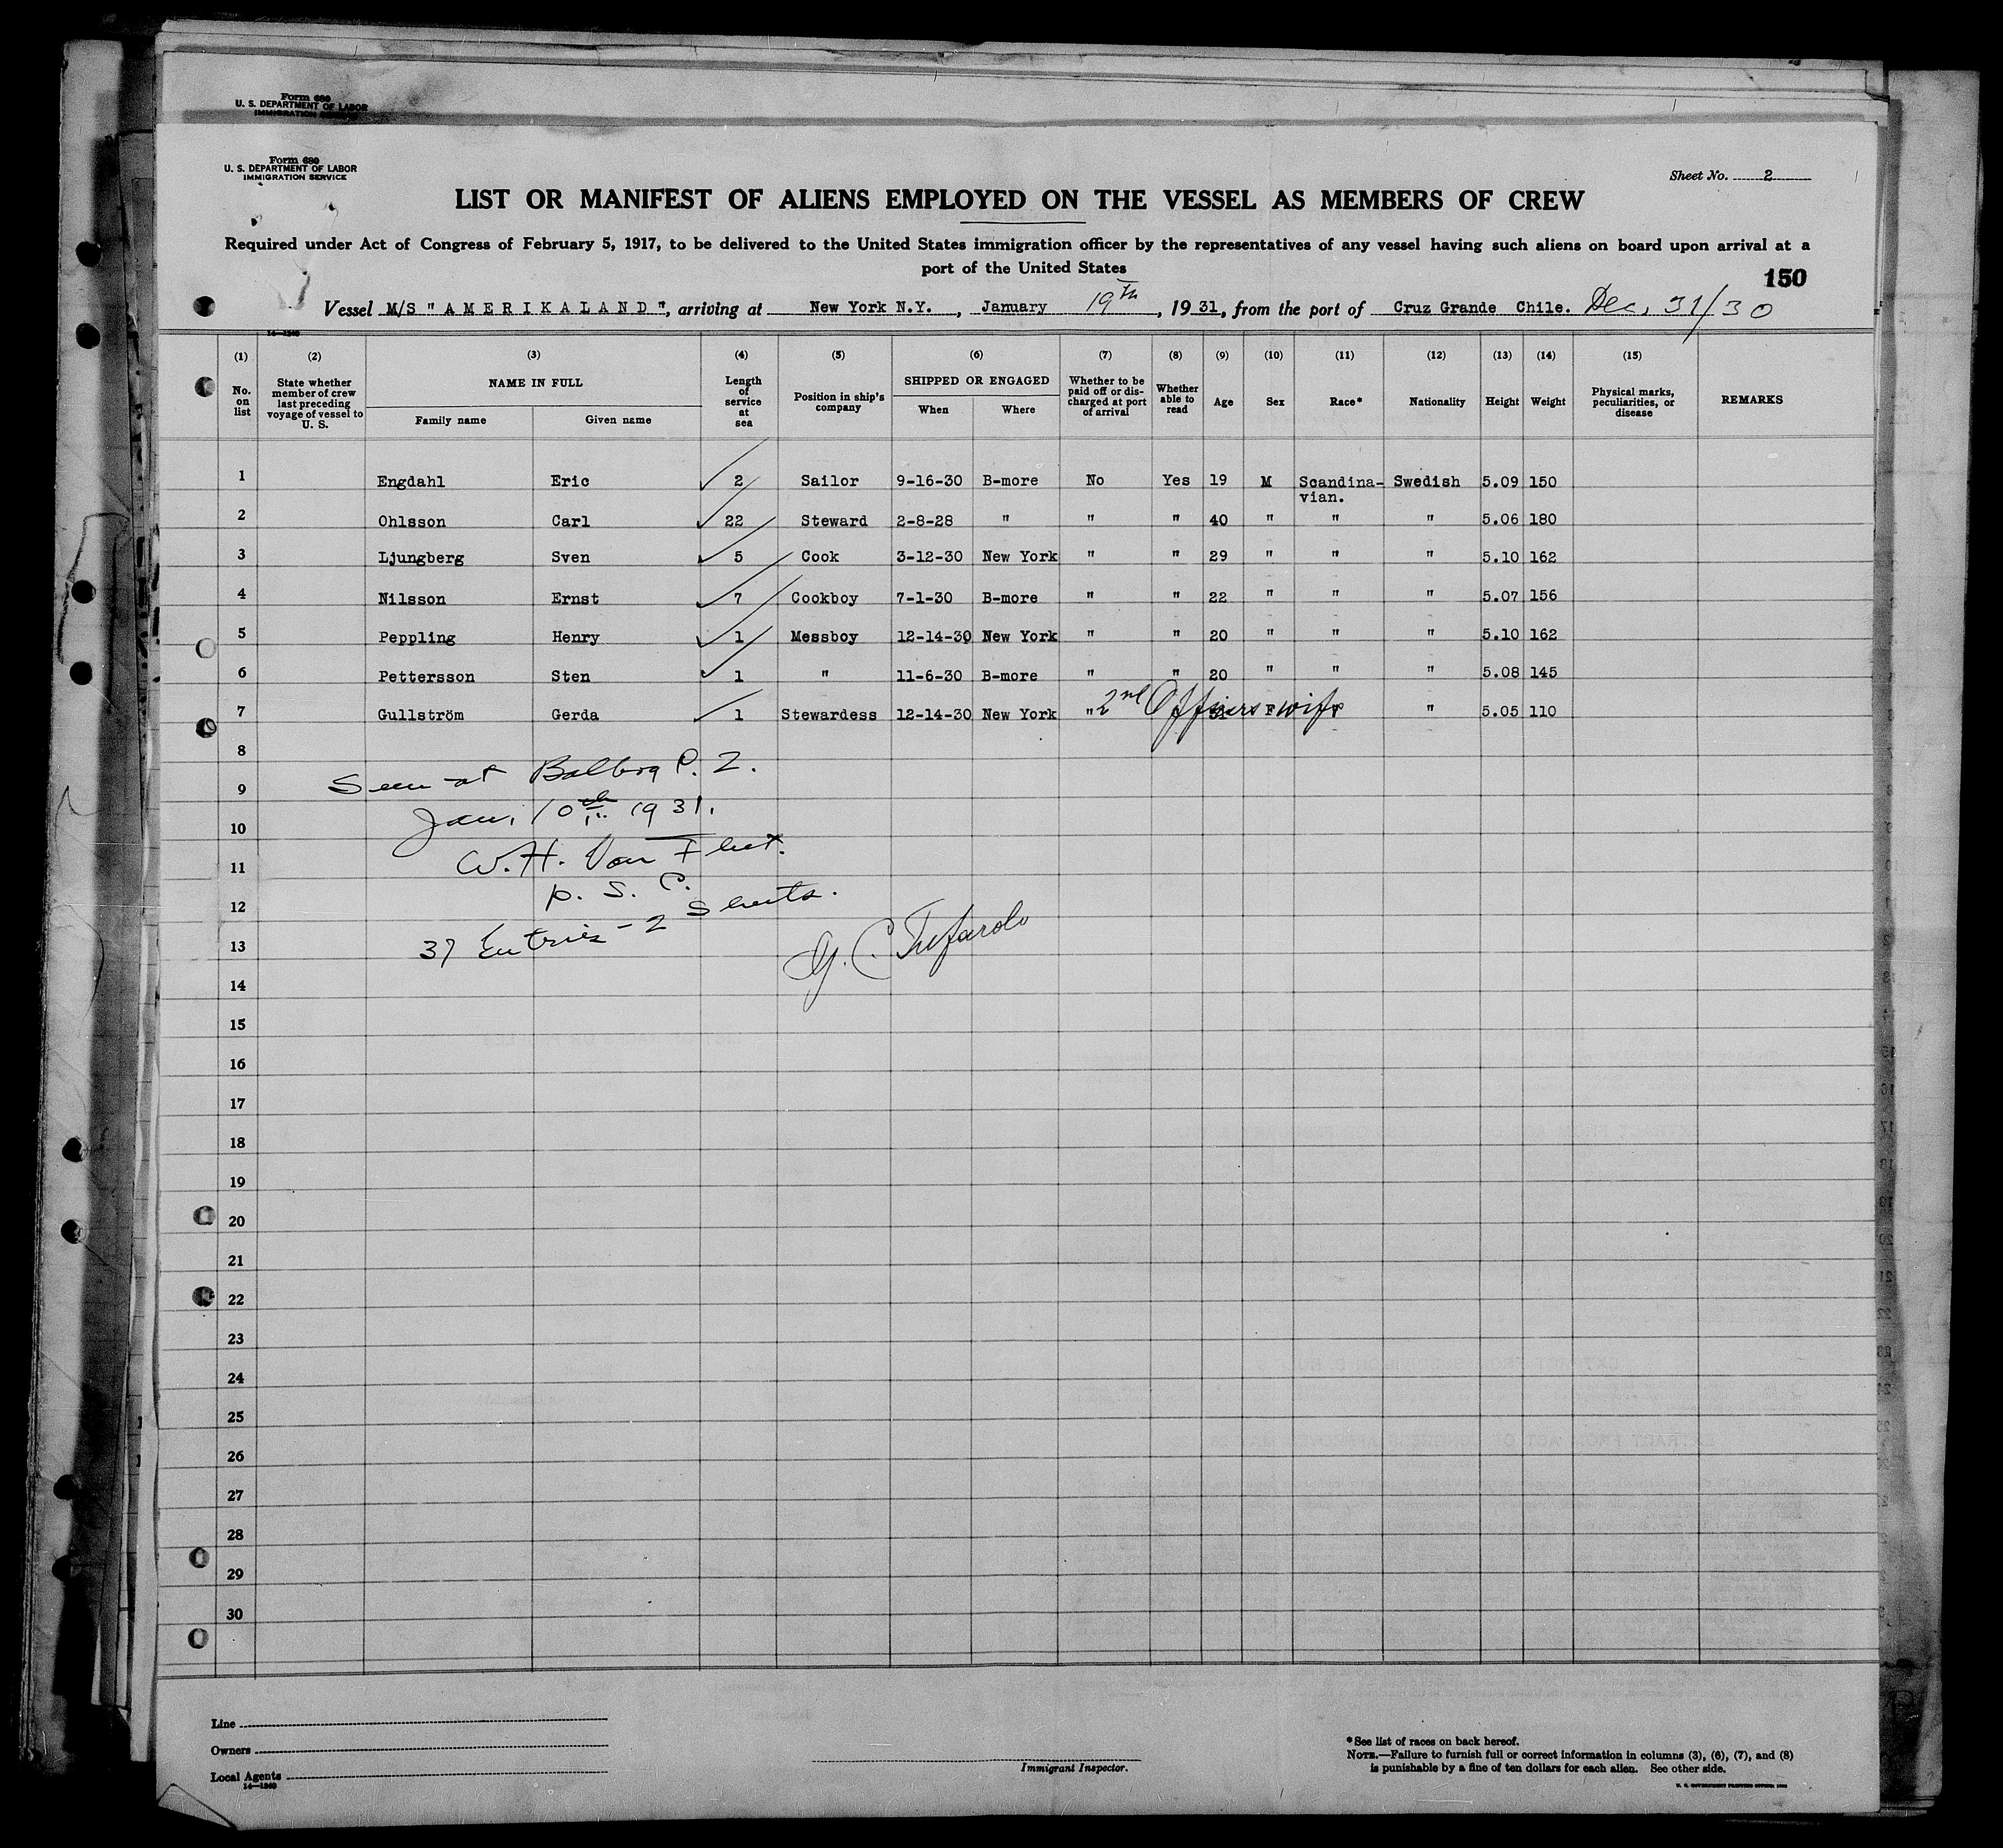 Form 680
U. S. DEPARTMENT OF LABOR
IMMIGRATION SERVICE
Form 680
U. S. DEPARTMENT OF LABOR
IMMIGRATION SERVICE
Sheet No. 2
LIST OR MANIFEST OF ALIENS EMPLOYED ON THE VESSEL AS MEMBERS OF CREW
Required under Act of Congress of February 5, 1917, to be delivered to the United States immigration officer by the representatives of any vessel having such aliens on board upon arrival at a
port of the United States
150
Vessel M/S "AMERIKALAND", arriving at New York N.Y., January 19th, 1931, from the port of Cruz Grande Chile. Dec, 31/30
14—1240
(1) (2) (3) (4) (5) (6) (7) (8) (9) (10) (11) (12) (13) (14) (15)
No. on list | State whether member of crew last preceding voyage of vessel to U. S. | NAME IN FULL Family name Given name | Length of service at sea | Position in ship's company | SHIPPED OR ENGAGED When Where | Whether to be paid off or discharged at port of arrival | Whether able to read | Age | Sex | Race* | Nationality | Height | Weight | Physical marks, peculiarities, or disease | REMARKS
1 Engdahl Eric 2 Sailor 9-16-30 B-more No Yes 19 M Scandina-vian. Swedish 5.09 150
2 Ohlsson Carl 22 Steward 2-8-28 " " " 40 " " " 5.06 180
3 Ljungberg Sven 5 Cook 3-12-30 New York " " 29 " " " 5.10 162
4 Nilsson Ernst 7 Cookboy 7-1-30 B-more " " 22 " " " 5.07 156
5 Peppling Henry 1 Messboy 12-14-30 New York " " 20 " " " 5.10 162
6 Pettersson Sten 1 " 11-6-30 B-more " " 20 " " " 5.08 145
7 Gullström Gerda 1 Stewardess 12-14-30 New York " 2nd Officers wife " 5.05 110
8
Seen at Balboa C. Z.
9
Jan, 10th 1931.
10
W.H. Van Fleet.
11
P. S. C.
12
37 Entries - 2 Sheets.
13
14
15
16
17
18
19
20
21
22
23
24
25
26
27
28
29
30
Line
Owners
Local Agents
14—1240
Immigrant Inspector.
*See list of races on back hereof.
NOTE.—Failure to furnish full or correct information in columns (3), (6), (7), and (8)
is punishable by a fine of ten dollars for each alien. See other side.
U. S. GOVERNMENT PRINTING OFFICE